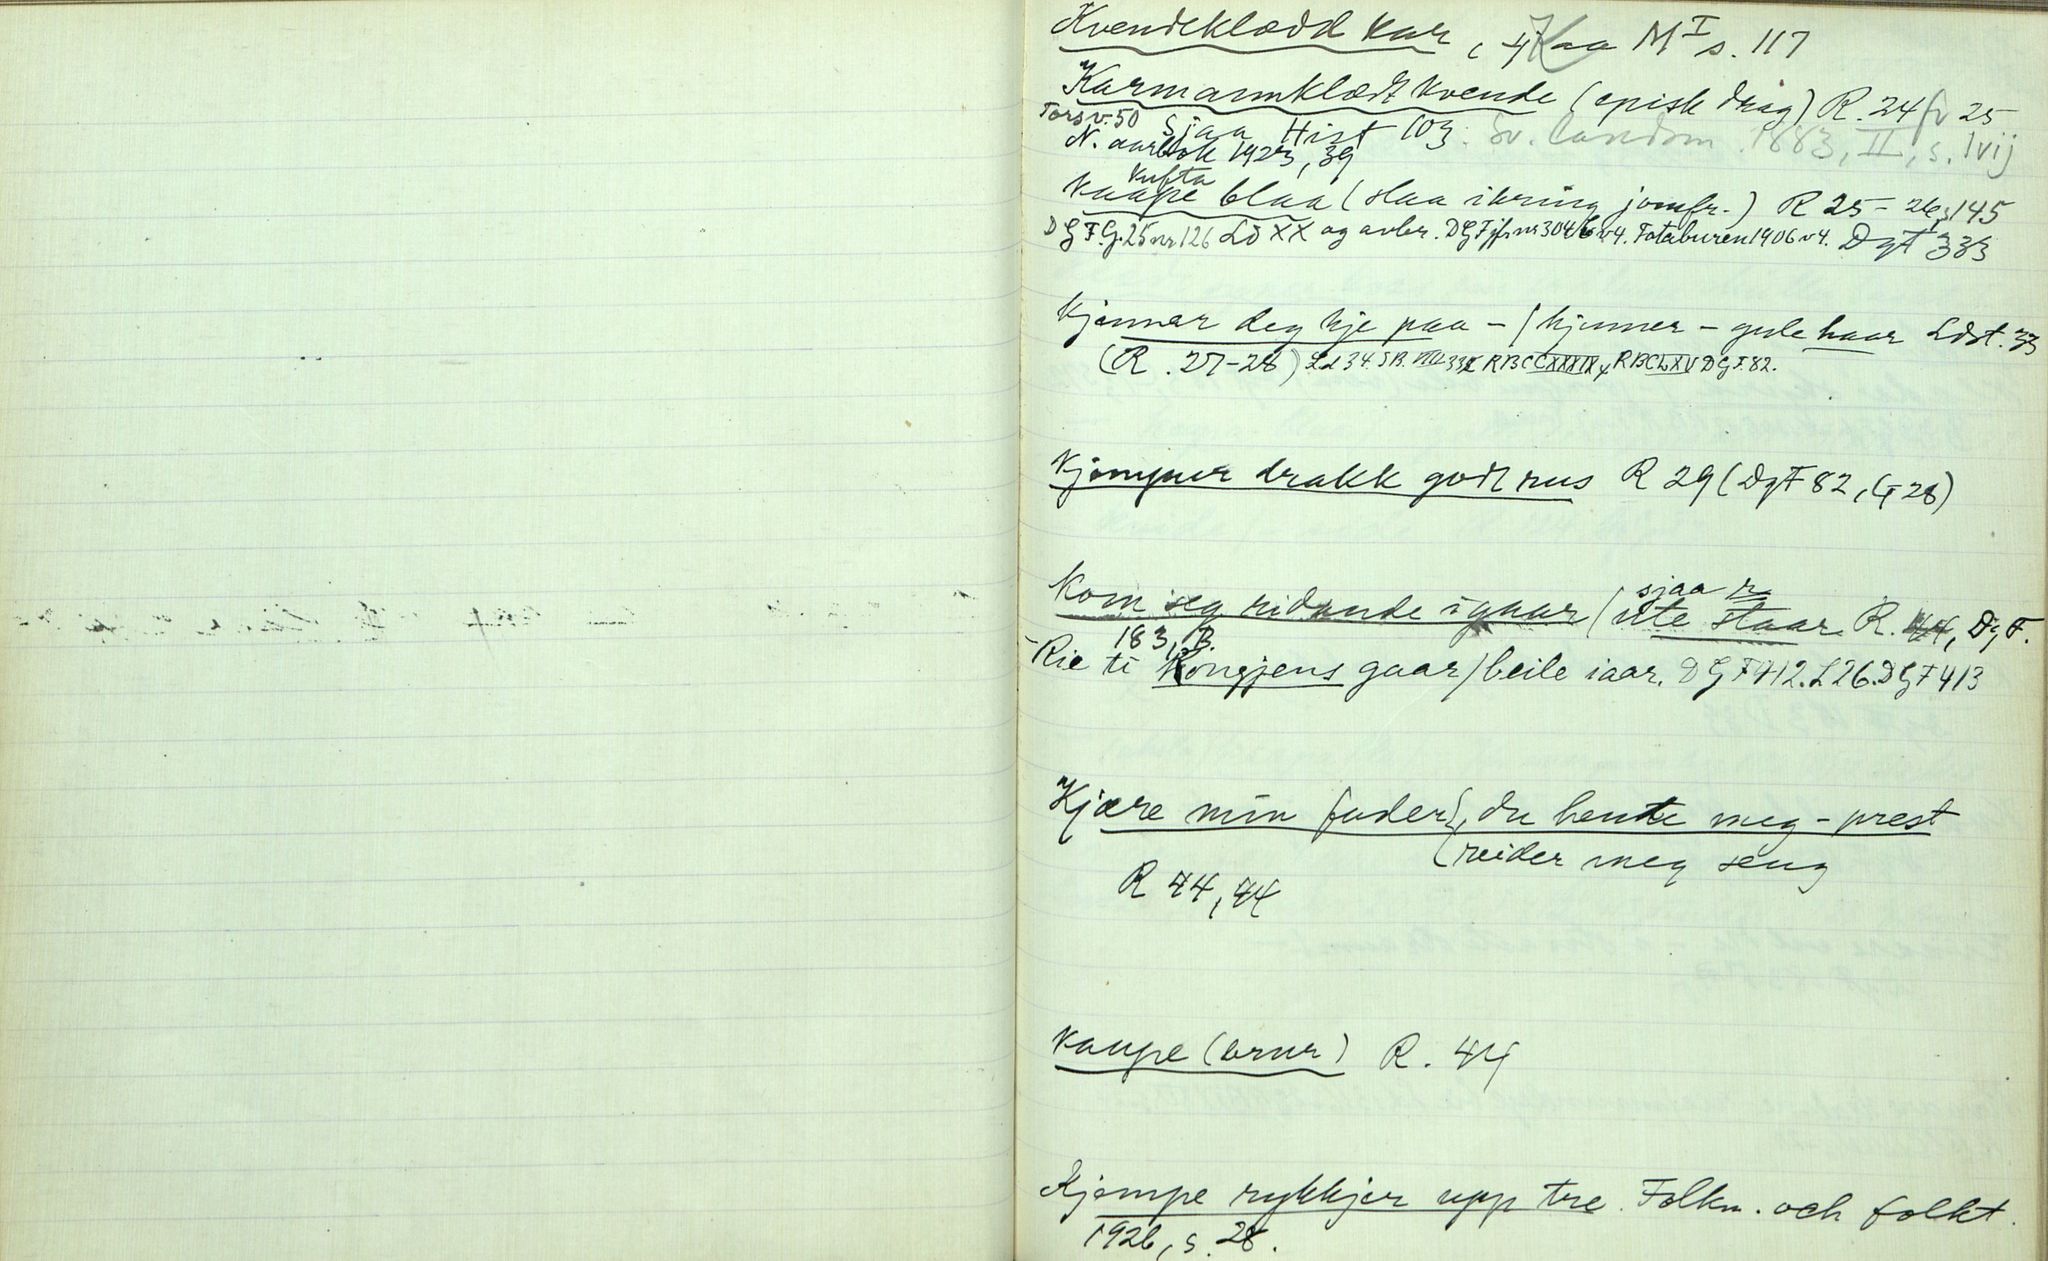 Kvendeklædd kar, M I s. 117
Karmannklædt kvende (episk drag) R. 24 fr 25
Tors v. 50 Sjaa Hist 103. Sv. landsm. 1883, II, s. lvij
N. aarbok 1923, 39
kufta
Kaape blaa (slaa ikring jomfr.) R 25-26, 145
DGF. G. 25 nr 126 Ld XX og avbr. DGF jfr. nr 304 v4. Fataburen 1906 v4. DgF 383
Kjenner deg kje paa - / kjenner - gule haar Ldst. 33
(R. 27-28) Ld 34. DGF. 82.
Kjemper drakk godt rus R 29 (DgF 82, G 28)
sjaa r
Kom seg ridande i gaar / ute staar R. 44, DgF.
183, B.
- Rie ti Kongjens gaar / beile iaar. DGF 412. L 26. DGF 413
Kjære min fader, du hente meg - prest
(reider meg seng
R 44, 44
Kaupe (ernr) R. 44
Kjempe rykkjer upp tre. Folkm. och folkt.
1926, s. 28.